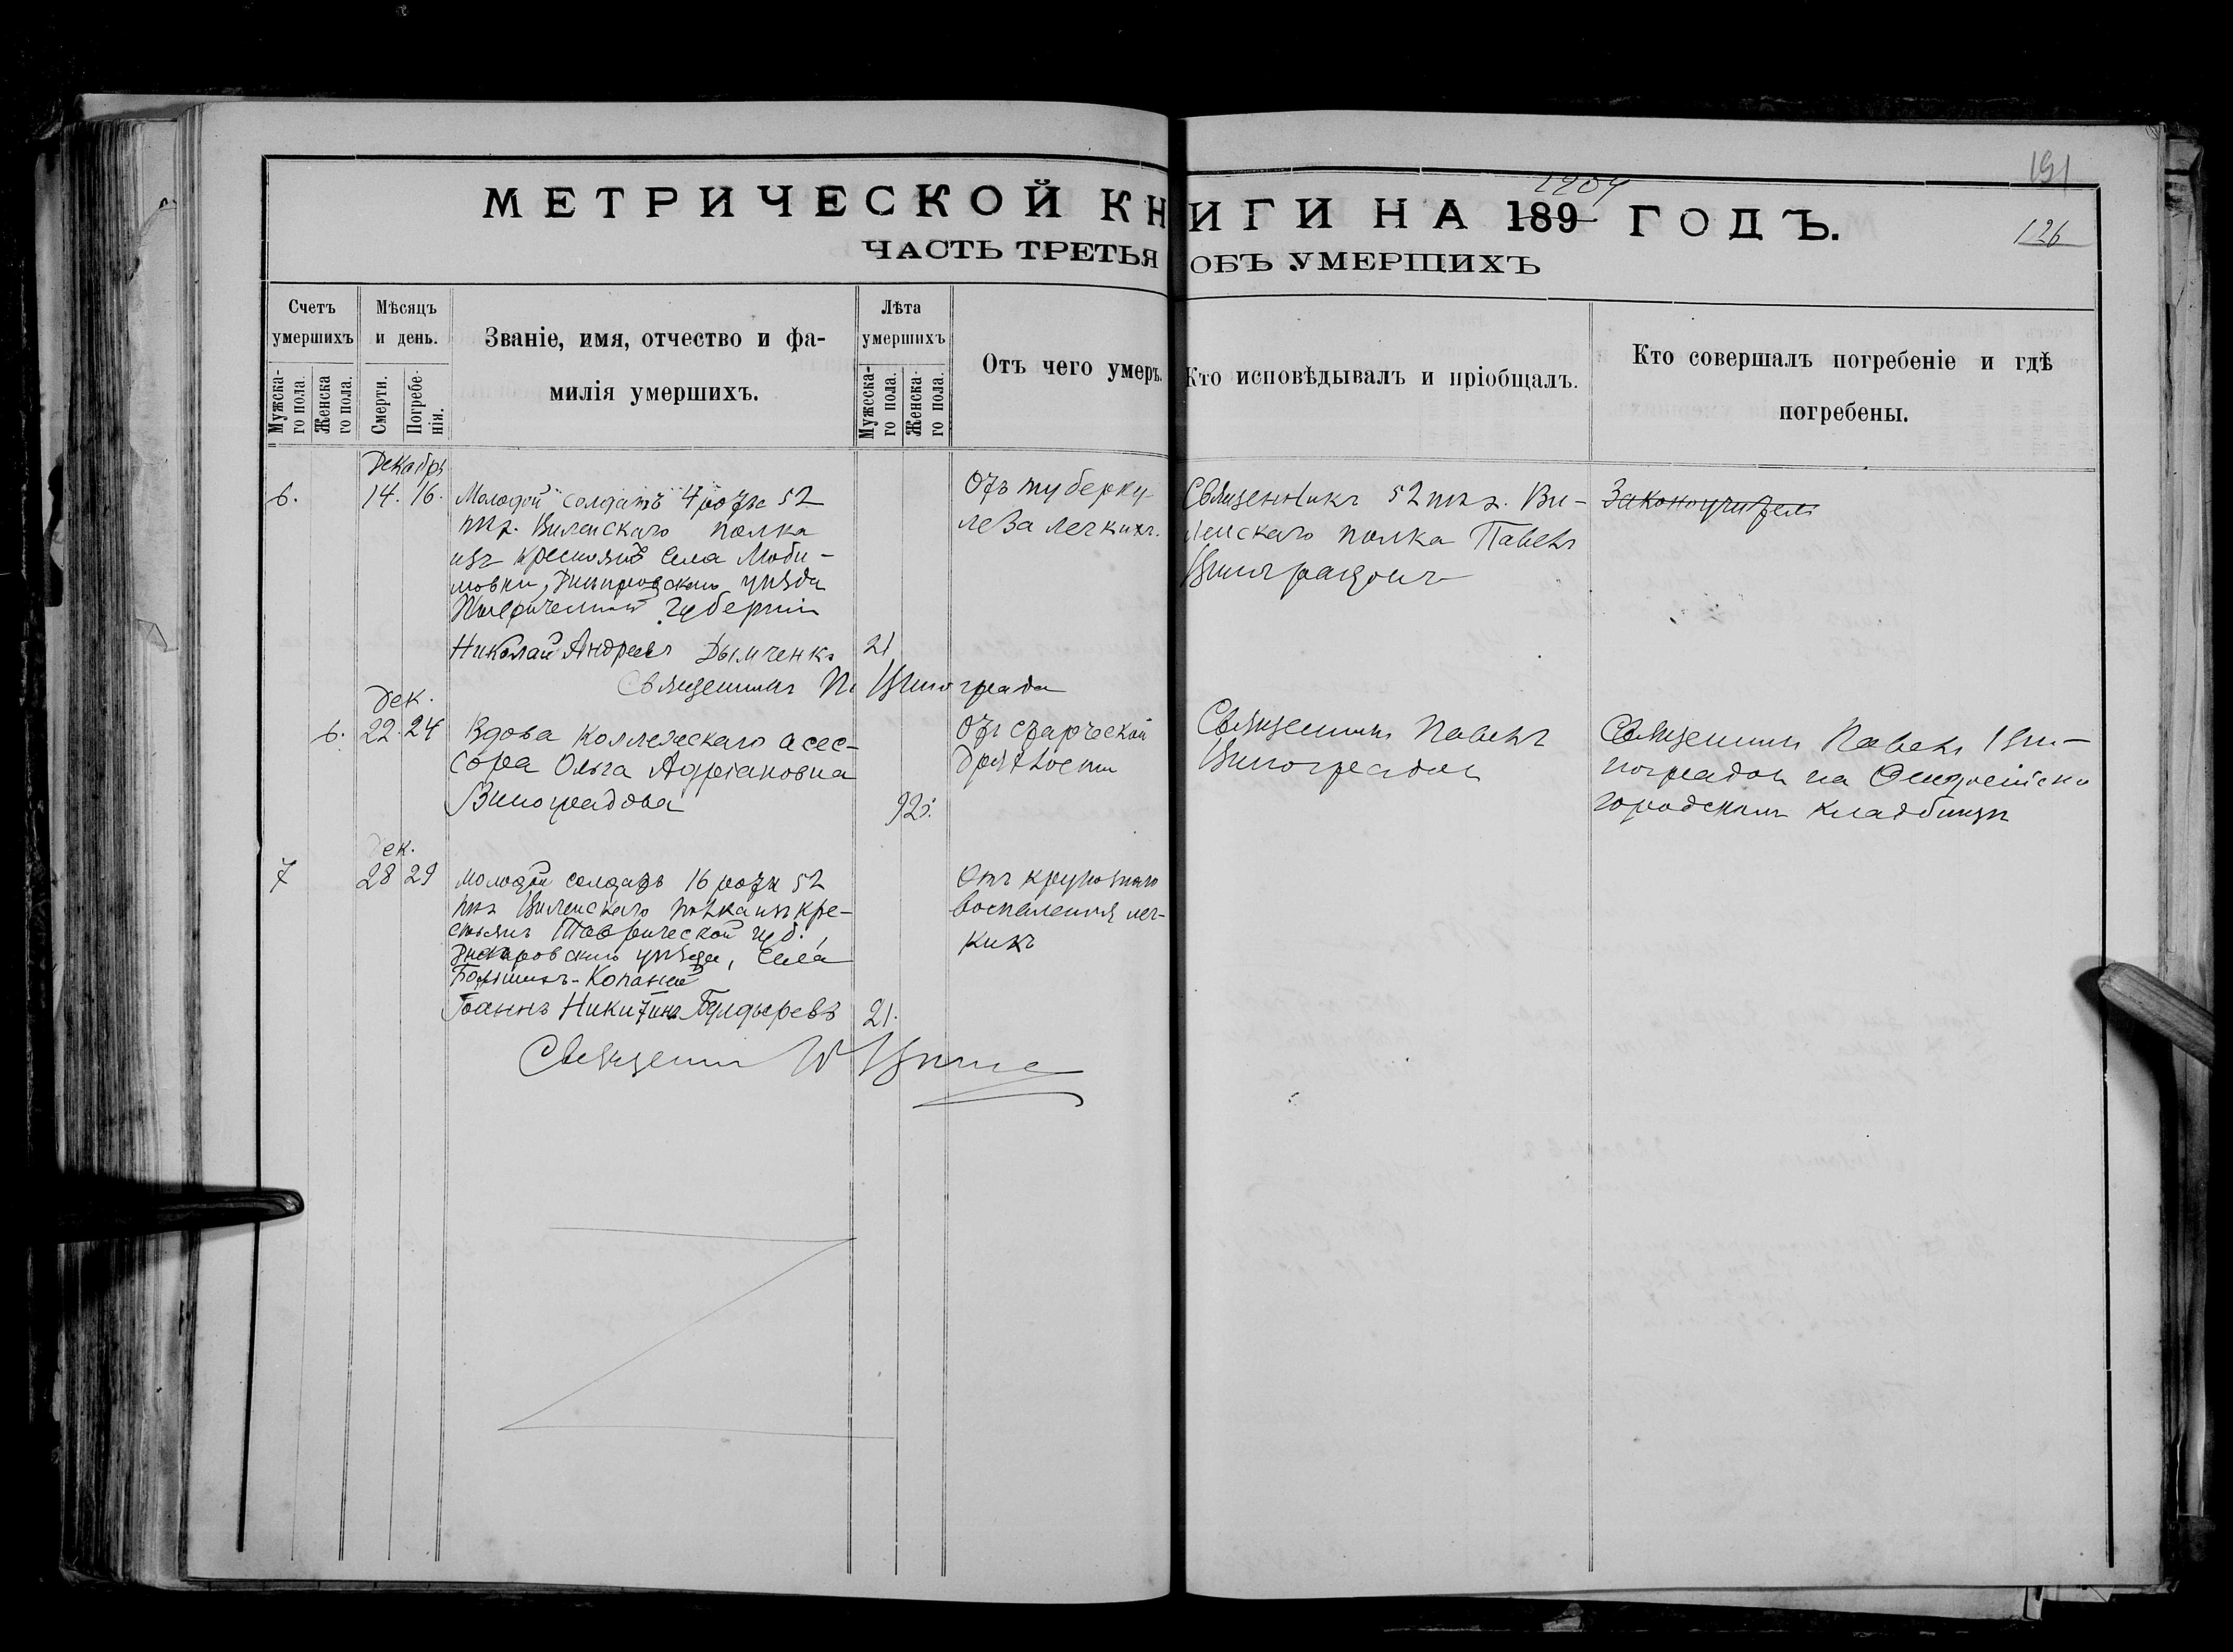 191
126
1904
МЕТРИЧЕСКОЙ КНИГИ НА 189 ГОДЪ.
ЧАСТЬ ТРЕТЬЯ ОБЪ УМЕРШИХЪ
Счетъ умершихъ
Мужеска-го пола.
Женска го пола.
Мѣсяцъ и день.
Смерти.
Погребе-нія.
Званіе, имя, отчество и фа-
милія умершихъ.
Лѣта умершихъ
Мужеска-го пола.
Женска-го пола.
Отъ чего умеръ.
Кто исповѣдывалъ и пріобщалъ.
Кто совершалъ погребеніе и гдѣ
погребены.
Декабрь
6. 14. 16.
Молодой солдатъ 4 роты 52
пѣх. Виленскаго полка
изъ крестьянъ села
Днѣпровскаго уѣзда
Таврической губерніи
Николай Андреевъ Дымченко
21
Отъ туберку-
леза легкихъ.
Священникъ 52 пѣх. Ви-
ленскаго полка Павелъ
Виноградовъ
Законоучитель
Священникъ П. Виноградовъ
Дек.
6. 22. 24
Вдова Коллежскаго асес-
сора Ольга Адріановна
Виноградова
92.
Отъ старческой
дряхлости
Священникъ Павелъ
Виноградовъ
Священникъ Павелъ Ви-
ноградовъ на Ѳеодосійско
городскомъ кладбищѣ
Дек.
7 28 29
Молодой солдатъ 16 роты 52
пѣх Виленскаго полка изъ кре-
стьянъ Таврической губ.,
Днѣпровскаго уѣзда, села
Большихъ-Копаней
Іоаннъ Никитинъ
21.
Отъ крупознаго
воспаленія лег-
кихъ
Священникъ П Вино